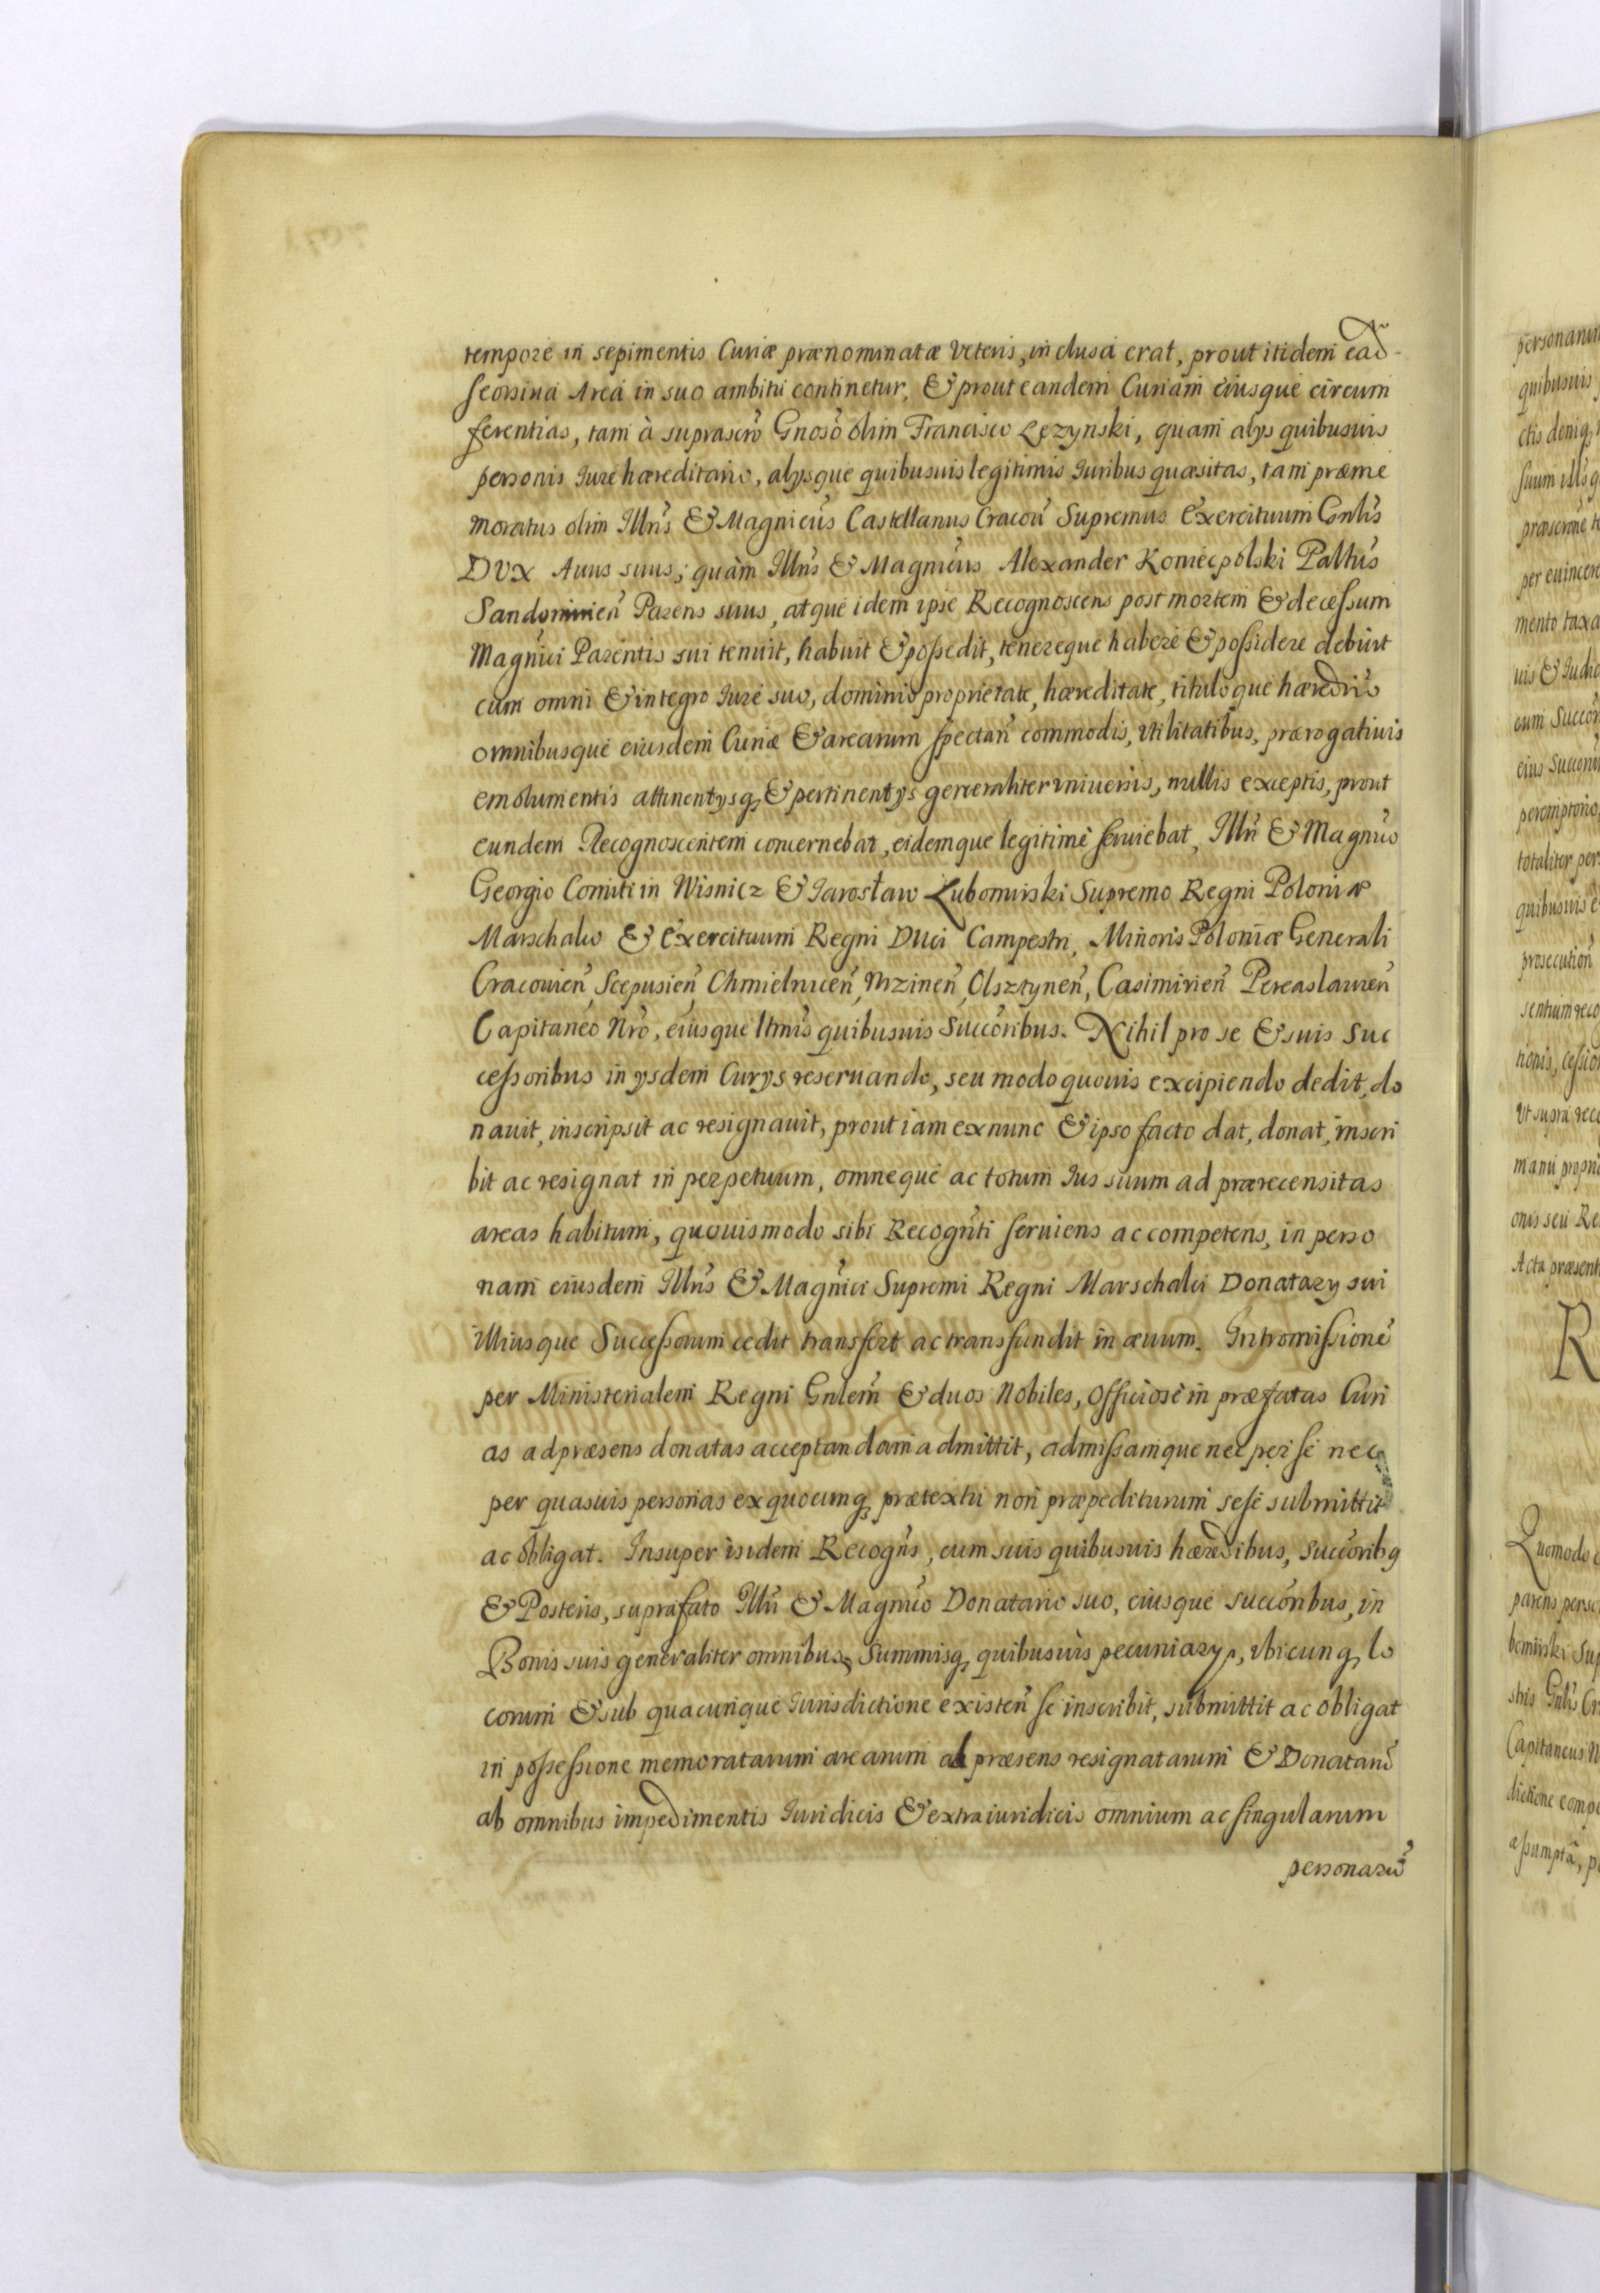 tempore in sepimentis Curiæ prænominatæ Veteris, inclusa erat, prout itidem ead
seorsina Area in suo ambitu continetur, & prout eandem Curiam eiusque circum
ferentias, tam à suprascrō Gnosō olim Francisco Lęzynski, quam alys quibusuis
personis Iure hæreditario, alysque quibusuis legitimis Iuribus quæsitas, tam præme
moratus olim Illrīs & Magnicūs Castellanus Cracoū Supremus Exercituum Gnlīs
DVX Auus suus, quàm Illrīs & Magnicūs Alexander Koniecpolski Paltūs
Sandomirien̄ Parens suus, atque idem ipse Recognoscens post mortem & decessum
Magnīci Parentis sui tenuit, habuit & possedit, tenereque habere & possidere debuit
cum omni & integro Iure suo, dominio proprietate, hæreditate, titulo que hæredrio
omnibusque eiusdem Curiæ & arearum spectan̄ commodis, vtilitatibus, prærogatiuis
emolumentis attinentysq, & pertinentys generaliter vniuersis, nullis exceptis, prout
eundem Recognoscentem concernebat, eidemque legitimè seruiebat, Illrī & Magnīco
Georgio Comiti in Wisnicz & Iarosław Lubomirski Supremo Regni Poloniæ
Marschalco & Exercituum Regni DUci Campestri, Minoris Poloniæ Generali
Cracouien̄, Scepusien̄, Chmielnicen̄, Nizinen̄, Olsztynen̄, Casimirien̄ Pereaslauien̄
Capitaneo Nrō, eiusque ltmīs quibusuis Succōribus. Nihil pro se & suis Suc
cessoribus in ysdem Curys reseruando, seu modo quouis excipiendo dedit, do
nauit, inscripsit ac resignauit, prout iam ex nunc & ipso facto dat, donat, inscri
bit ac resignat in perpetuum, omneque ac totum Ius suum ad prærecensitas
areas habitum, quouismodo sibi Recognīti seruiens ac competens, in perso
nam eiusdem Illrīs & Magnīci Supremi Regni Marschalci Donatary sui
illiusque Successorum cedit transfert ac transfundit in æuum. Intromissionē
per Ministerialem Regni Gnlem̄ & duos Nobiles, officiosè in præfatas Curi
as ad præsens donatas acceptandam admittit, admissamque nec per se nec
per quasuis personas ex quocunq, prætextu non præpediturum sese submittit
ac obligat. Insuper isidem Recogn̄s, cum suis quibusuis hæredibus, succōribq
& Posteris, suprafato Illrī & Magnīco Donatario suo, eiusque succōribus, in
Bonis suis generaliter omnibus, Summisq, quibusuis pecuniarys, vbicunq, lo
corum & sub quacunque Iurisdictione existen̄ se inscribit, submittit ac obligat
in possessione memoratarum arearum ad præsens resignatarum & Donatarū
ab omnibus impedimentis Iuridicis & extraiuridicis omnium ac singularum
personarū